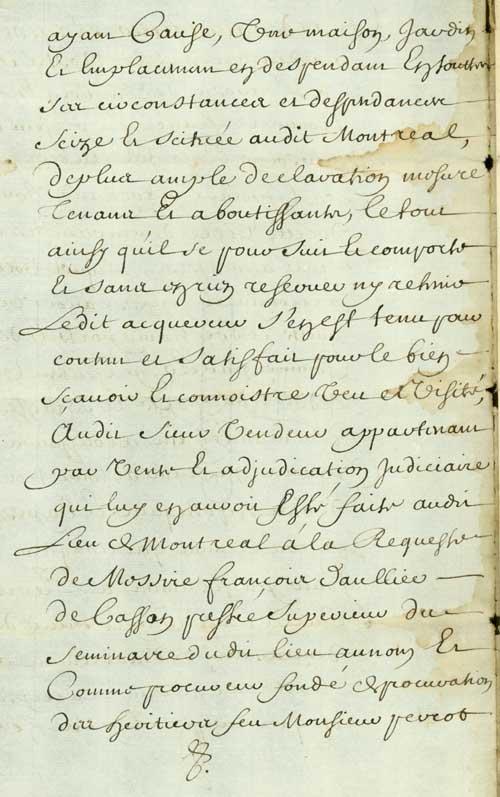 ayant Cause, Une maison, Jardin
Et Emplacement en despendant En toutte
ses circonstances et despendances
Seize Et scituée audit Montreal,
de plus ample declaration mesure
Tenans Et aboutissants, le tout
ainsy qu'il se poursuit Et comporte
Et sans en rien reserver ny retenir
Ledit acquereur s'en est tenu pour
content et satisfait pour le bien
sçavoir Et connoistre Veu et Visité,
Audit sieur Vendeur appartenant
par Vente Et adjudication Judiciaire
qui luy en auroit Esté faite audit
Lieu de Montreal á la Requeste
de Messire françois Daulliée
de Casson prestre Superieur du
Seminaire dudit lieu au nom Et
Comme procureur fondé de procuration
des heritiers feu Monsieur perrot